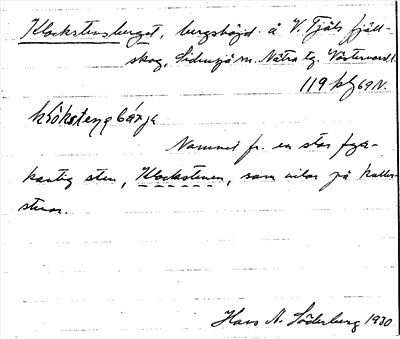 Klockstensberget, bergshöjd å V. Tjäls fjäll-
skog, Sidensjö sn. Nätra tg. Västernorrl. l.
119 kbf 69 N.
Namnet fr. en stor fyr-
kantig sten, Klockstenen, som vilar på kuller-
stenar.
Hans A. Söderberg 1930